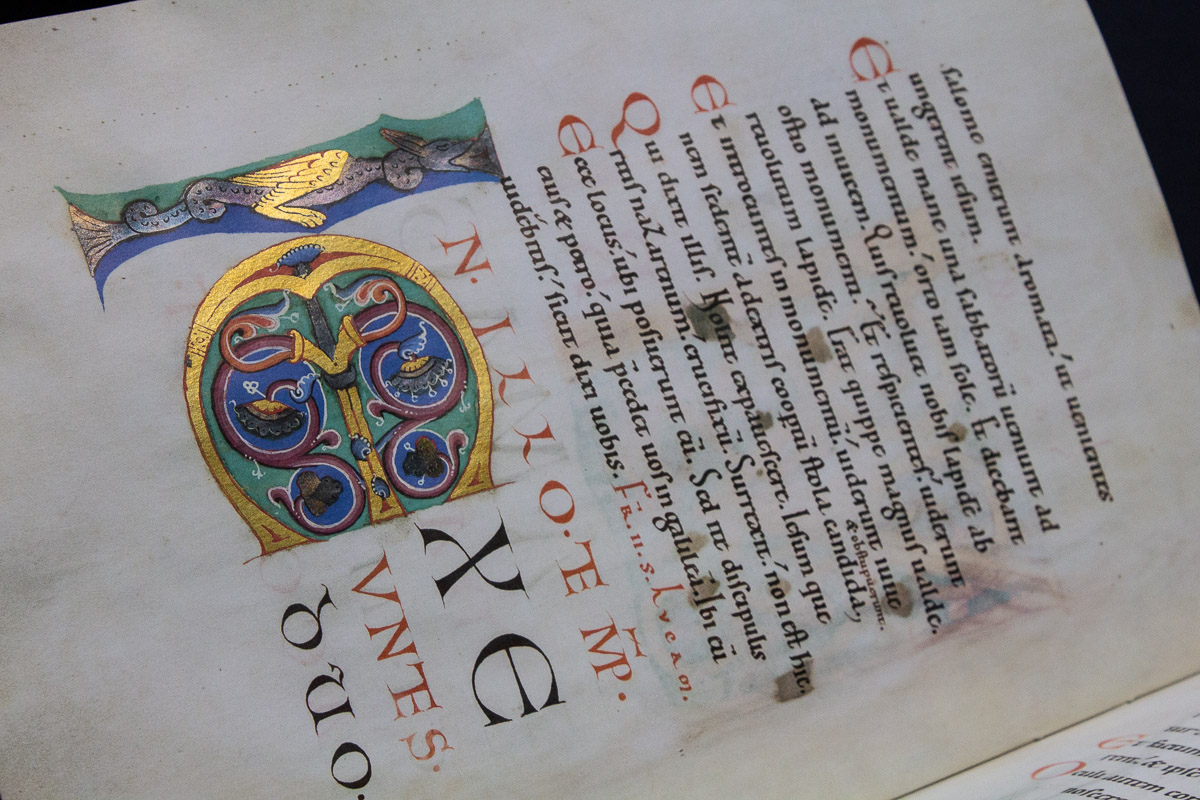 salome emerunt aromata. ut uenientes
ungerent iesum.
Et ualde mane una sabbatorū ueniunt ad
monumentum. orto iam sole. Et dicebant
ad inuicem. Quis reuoluet nobis lapidē ab
ostio monumenti. Et respicientes. uiderunt
reuolutum lapidē. Erat quippe magnus ualde.
Et introeuntes in monumentū. uiderunt iuue
nem sedentē a dextris coopertū stola candida,
&obstupuerunt.
Qui dixit illis. Nolite expauescere. Iesum que
ritis nazarenum. crucifixū. Surrexit. non est hic.
Ecce locus. ubi posuerunt eū. Sed ite discipulis
eius & petro. quia p̄cedet uos in galileā. Ibi eū
uidebitis. sicut dixit uobis. FR. II. S. LVCAM.
IN. ILLO. TEMP̄.
EXE
UNTES.
DUO.